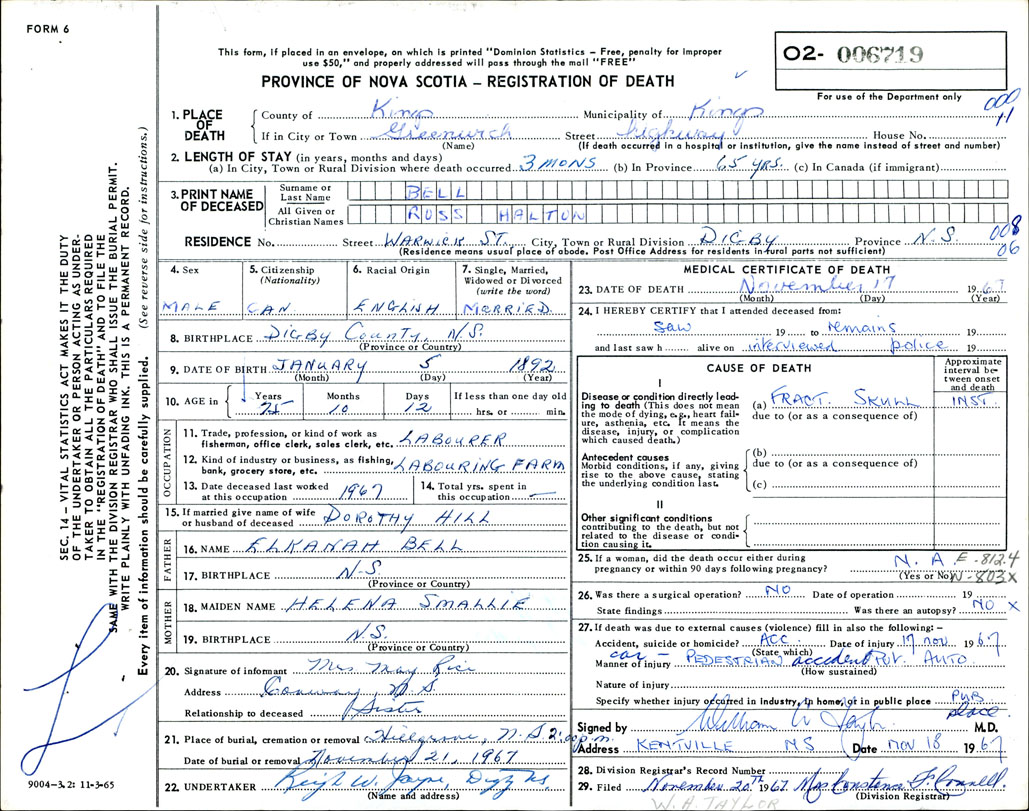 FORM 6
This form, if placed in an envelope, on which is printed "Dominion Statistics – Free, penalty for improper
use $50," and properly addressed will pass through the mail "FREE"
PROVINCE OF NOVA SCOTIA – REGISTRATION OF DEATH
O2- 006719
For use of the Department only
000
11
1. PLACE OF DEATH
County of Kings Municipality of Kings
If in City or Town Greenwich Street highway House No.
(Name) (If death occurred in a hospital or institution, give the name instead of street and number)
2. LENGTH OF STAY (in years, months and days)
(a) In City, Town or Rural Division where death occurred 3 MONS (b) In Province 65 YRS. (c) In Canada (if immigrant)
3. PRINT NAME OF DECEASED
Surname or Last Name BELL
All Given or Christian Names ROSS HALTON
008
06
RESIDENCE No. Street WARWICK ST. City, Town or Rural Division DIGBY Province N.S.
(Residence means usual place of abode. Post Office Address for residents in rural parts not sufficient)
4. Sex MALE
5. Citizenship (Nationality) CAN.
6. Racial Origin ENGLISH
7. Single, Married, Widowed or Divorced (write the word) MERRIED
8. BIRTHPLACE DIGBY COUNTY, N.S.
(Province or Country)
9. DATE OF BIRTH JANUARY 5 1892
(Month) (Day) (Year)
10. AGE in Years 75 Months 10 Days 12 If less than one day old hrs. or min.
OCCUPATION
11. Trade, profession, or kind of work as fisherman, office clerk, sales clerk, etc. LABOURER
12. Kind of industry or business, as fishing, bank, grocery store, etc. LABOURING FARM
13. Date deceased last worked at this occupation 1967
14. Total yrs. spent in this occupation —
15. If married give name of wife or husband of deceased DOROTHY HILL
FATHER
16. NAME ELKANAH BELL
17. BIRTHPLACE N.S.
(Province or Country)
MOTHER
18. MAIDEN NAME HELENA SMALLIE
19. BIRTHPLACE N.S.
(Province or Country)
20. Signature of informant Mrs. May Rice
Address Conway, N.S.
Relationship to deceased Sister
21. Place of burial, cremation or removal Hillgrove, N.S 2.00 p.m.
Date of burial or removal November 21, 1967
22. UNDERTAKER
(Name and address)
MEDICAL CERTIFICATE OF DEATH
23. DATE OF DEATH November 17 1967
(Month) (Day) (Year)
24. I HEREBY CERTIFY that I attended deceased from:
saw 19 to remains 19
and last saw h alive on interviewed police 19
CAUSE OF DEATH
Approximate interval between onset and death
I
Disease or condition directly leading to death (This does not mean the mode of dying, e.g., heart failure, asthenia, etc. It means the disease, injury, or complication which caused death.)
(a) FRACT. SKULL INST.
due to (or as a consequence of)
Antecedent causes
Morbid conditions, if any, giving rise to the above cause, stating the underlying condition last.
(b)
due to (or as a consequence of)
(c)
II
Other significant conditions
contributing to the death, but not related to the disease or condition causing it.
25. If a woman, did the death occur either during pregnancy or within 90 days following pregnancy? N. A
(Yes or No)
E-812.4
N-803X
26. Was there a surgical operation? NO Date of operation 19
State findings Was there an autopsy? NO X
27. If death was due to external causes (violence) fill in also the following:–
Accident, suicide or homicide? ACC. Date of injury 17 nov. 1967
(State which)
Manner of injury car – PEDESTRIAN accident AUTO
(How sustained)
Nature of injury
Specify whether injury occurred in industry, in home, or in public place Pub place
Signed by M.D.
Address KENTVILLE NS Date nov 18 1967
28. Division Registrar's Record Number
29. Filed November 20th 1967 Mrs Constance
(Division Registrar)
W. A. TAYLOR
SEC. 14 – VITAL STATISTICS ACT MAKES IT THE DUTY
OF THE UNDERTAKER OR PERSON ACTING AS UNDER-
TAKER TO OBTAIN ALL THE PARTICULARS REQUIRED
IN THE "REGISTRATION OF DEATH" AND TO FILE THE
SAME WITH THE DIVISION REGISTRAR WHO SHALL ISSUE THE BURIAL PERMIT.
WRITE PLAINLY WITH UNFADING INK. THIS IS A PERMANENT RECORD.
Every item of information should be carefully supplied. (See reverse side for instructions.)
9004-3.2: 11-3-65